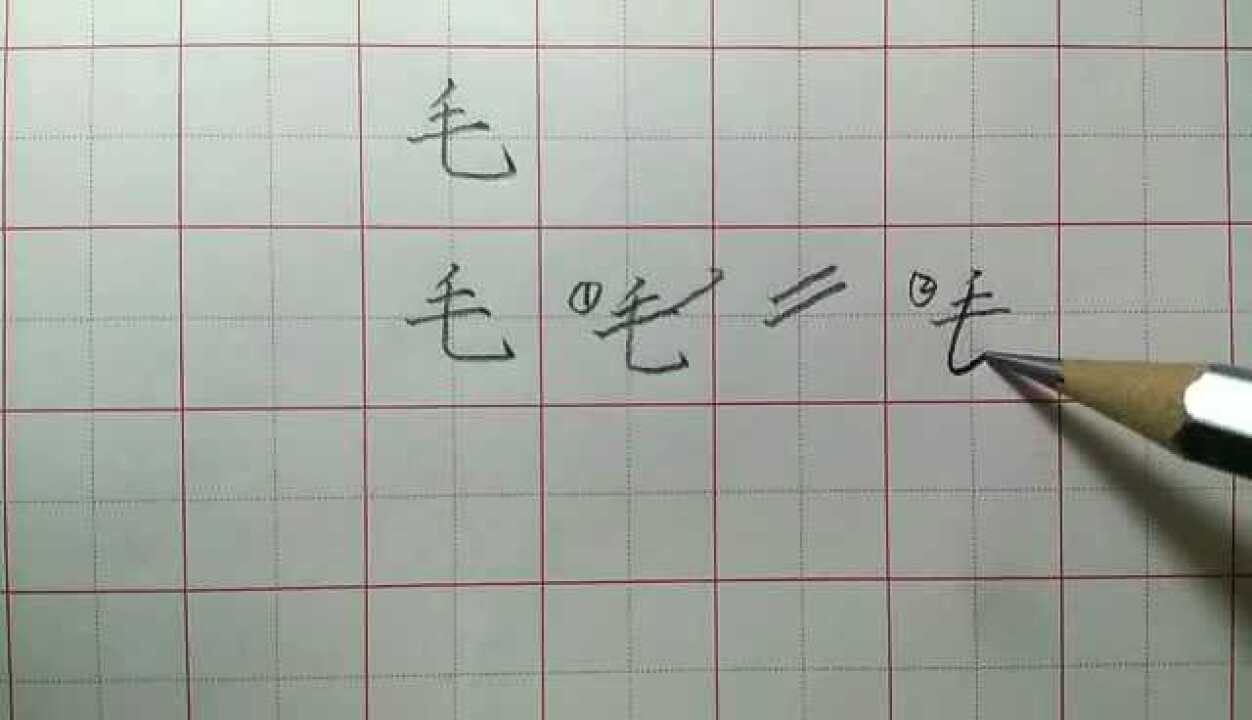 毛
毛 ①毛 = ②毛